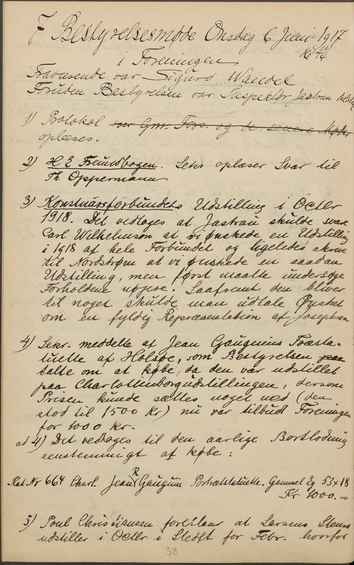 7 Bestyrelsesmøde Onsdag 6 Juni 1917
i Foreningen
Fraværende var Sigurd Wandel
Foruden Bestyrelsen var Inspektør Jastrau
1) Protokol var Gen. Fors. og de
oplæses.
2) H. E. Freundbogen. Sekr. oplæser Svar til
Th. Oppermann
3) Kunstnerforbundets Udstilling i October
1918. Det vedtoges at Jastrau skulde svare
Carl Wilhelmson at vi ønskede en Udstilling
i 1918 af hele Forbundet og ligeledes skrive
til Nordstrøm at vi ønskede en saadan
Udstilling, men først maatte undersøge
Forholdene nøjere. Saafremt den bliver
til noget skulde man udtale Ønsket
om en fyldig Repræsentation af Josephson
4) Sekr. meddelte at Jean Gauguins
af Holberg, som Bestyrelsen
talte om at købe, da den var udstillet
paa Charlottenborgudstillingen, dersom
Prisen kunde sættes noget ned (den
stod til 1500 kr) nu var tilbudt Foreningen
for 1000 kr.
at 4) Det vedtoges til den aarlige Bortlodning
eenstemmigt at købe:
Kat. Nr 664 Charl. Jean R Gauguin Portrætstatuette. Gammel Eg 53x18
Kr. 1000.-
5) Poul Christiansen foreslaar at Larsens
udstilles i Octbr i Stedet for Febr. hvorfor
38